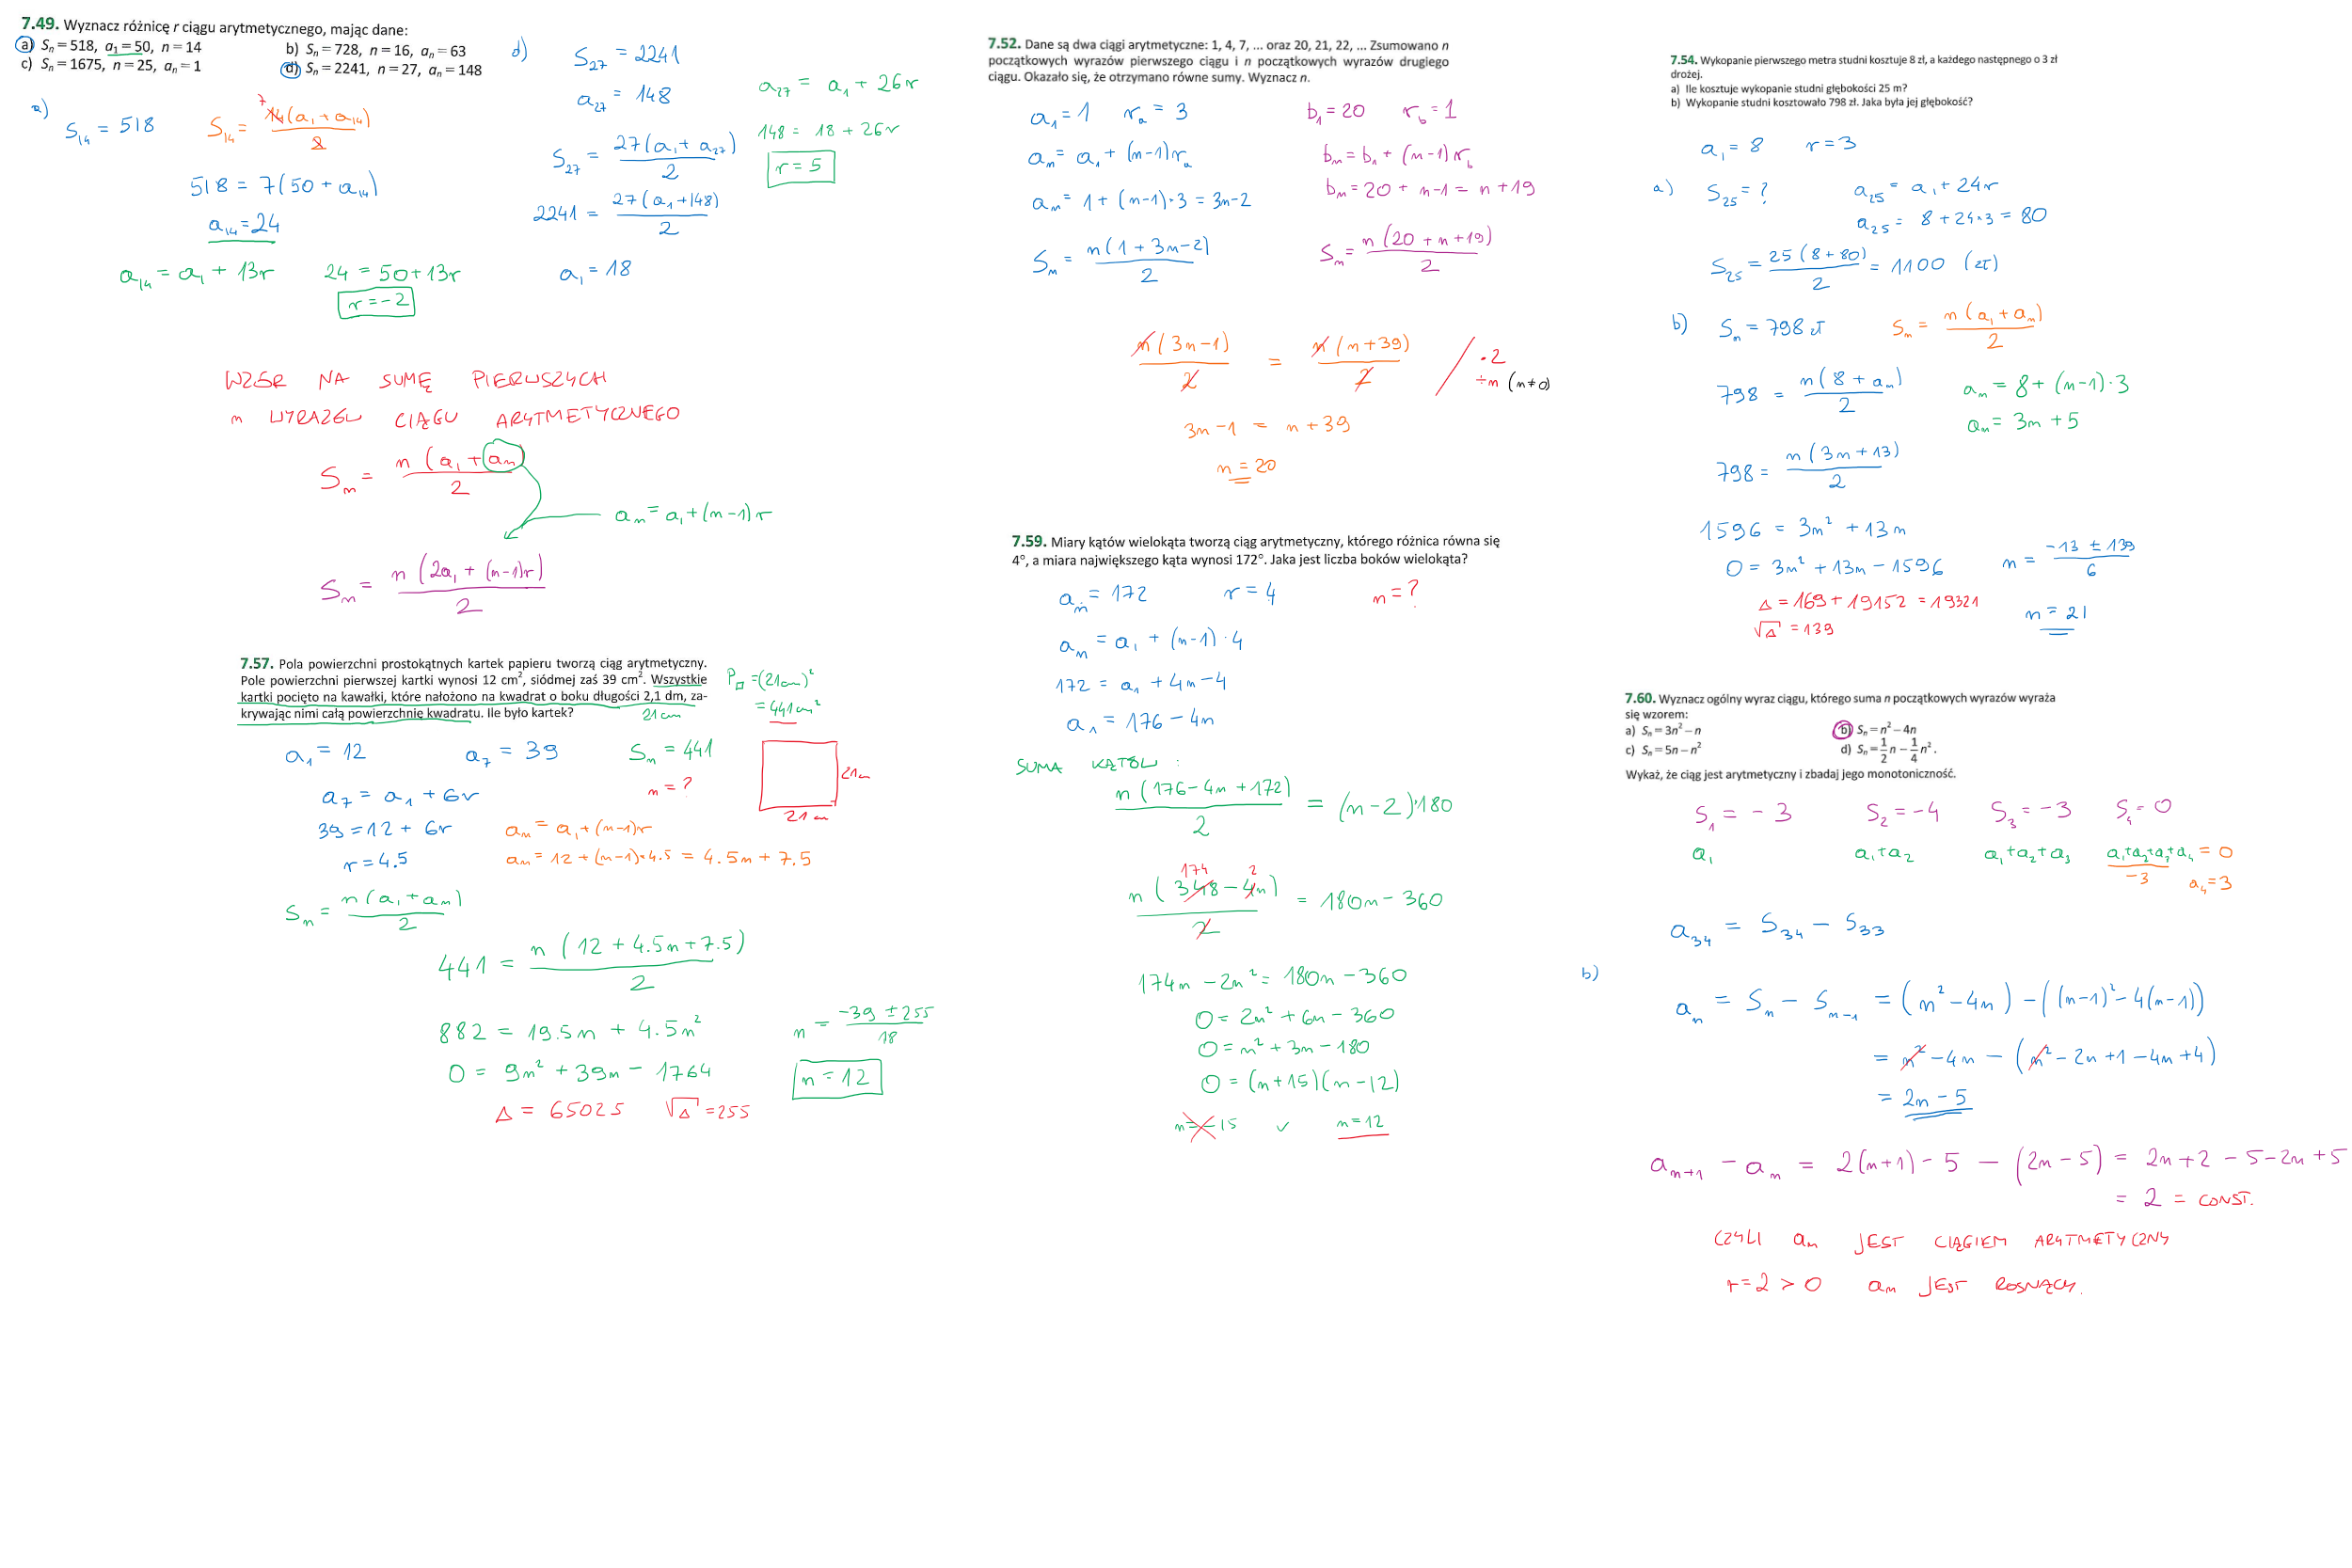 7.49. Wyznacz różnicę r ciągu arytmetycznego, mając dane:
a) Sₙ = 518, a₁ = 50, n = 14
b) Sₙ = 728, n = 16, aₙ = 63
c) Sₙ = 1675, n = 25, aₙ = 1
d) Sₙ = 2241, n = 27, aₙ = 148
a)
S₁₄ = 518
S₁₄ = 14(a₁ + a₁₄) / 2
7
518 = 7(50 + a₁₄)
a₁₄ = 24
a₁₄ = a₁ + 13r
24 = 50 + 13r
r = -2
d)
S₂₇ = 2241
a₂₇ = 148
S₂₇ = 27(a₁ + a₂₇) / 2
2241 = 27(a₁ + 148) / 2
a₁ = 18
a₂₇ = a₁ + 26r
148 = 18 + 26r
r = 5
WZÓR NA SUMĘ PIERWSZYCH
n WYRAZÓW CIĄGU ARYTMETYCZNEGO
Sₙ = n(a₁ + aₙ) / 2
aₙ = a₁ + (n-1)r
Sₙ = n(2a₁ + (n-1)r) / 2
7.57. Pola powierzchni prostokątnych kartek papieru tworzą ciąg arytmetyczny.
Pole powierzchni pierwszej kartki wynosi 12 cm², siódmej zaś 39 cm². Wszystkie
kartki pocięto na kawałki, które nałożono na kwadrat o boku długości 2,1 dm, za-
krywając nimi całą powierzchnię kwadratu. Ile było kartek?
21 cm
P□ = (21cm)²
= 441 cm²
a₁ = 12
a₇ = 39
Sₙ = 441
n = ?
21 cm
21 cm
a₇ = a₁ + 6r
39 = 12 + 6r
r = 4.5
aₙ = a₁ + (n-1)r
aₙ = 12 + (n-1)·4.5 = 4.5n + 7.5
Sₙ = n(a₁ + aₙ) / 2
441 = n(12 + 4.5n + 7.5) / 2
882 = 19.5n + 4.5n²
0 = 9n² + 39n - 1764
Δ = 65025 √Δ = 255
n = -39 ± 255 / 18
n = 12
7.52. Dane są dwa ciągi arytmetyczne: 1, 4, 7, ... oraz 20, 21, 22, ... Zsumowano n
początkowych wyrazów pierwszego ciągu i n początkowych wyrazów drugiego
ciągu. Okazało się, że otrzymano równe sumy. Wyznacz n.
a₁ = 1 rₐ = 3
aₙ = a₁ + (n-1)rₐ
aₙ = 1 + (n-1)·3 = 3n-2
Sₙ = n(1 + 3n-2) / 2
b₁ = 20 r_b = 1
bₙ = b₁ + (n-1)r_b
bₙ = 20 + n-1 = n + 19
Sₙ = n(20 + n + 19) / 2
n(3n-1) / 2 = n(n+39) / 2 / ·2
÷n (n≠0)
3n-1 = n + 39
n = 20
7.59. Miary kątów wielokąta tworzą ciąg arytmetyczny, którego różnica równa się
4°, a miara największego kąta wynosi 172°. Jaka jest liczba boków wielokąta?
aₙ = 172 r = 4 n = ?
aₙ = a₁ + (n-1)·4
172 = a₁ + 4n-4
a₁ = 176-4n
SUMA KĄTÓW:
n(176-4n + 172) / 2 = (n-2)·180
174 2
n(348-4n) / 2 = 180n-360
174n - 2n² = 180n-360
0 = 2n² + 6n - 360
0 = n² + 3n - 180
0 = (n+15)(n-12)
n = -15 v n = 12
7.54. Wykopanie pierwszego metra studni kosztuje 8 zł, a każdego następnego o 3 zł
drożej.
a) Ile kosztuje wykopanie studni głębokości 25 m?
b) Wykopanie studni kosztowało 798 zł. Jaka była jej głębokość?
a₁ = 8 r = 3
a) S₂₅ = ?
a₂₅ = a₁ + 24r
a₂₅ = 8 + 24·3 = 80
S₂₅ = 25(8 + 80) / 2 = 1100 (zł)
b) Sₙ = 798 zł
Sₙ = n(a₁ + aₙ) / 2
798 = n(8 + aₙ) / 2
aₙ = 8 + (n-1)·3
aₙ = 3n + 5
798 = n(3n + 13) / 2
1596 = 3n² + 13n
0 = 3n² + 13n - 1596
Δ = 169 + 19152 = 19321
√Δ = 139
n = -13 ± 139 / 6
n = 21
7.60. Wyznacz ogólny wyraz ciągu, którego suma n początkowych wyrazów wyraża
się wzorem:
a) Sₙ = 3n² - n
b) Sₙ = n² - 4n
c) Sₙ = 5n - n²
d) Sₙ = 1/2 n - 1/4 n².
Wykaż, że ciąg jest arytmetyczny i zbadaj jego monotoniczność.
S₁ = -3 S₂ = -4 S₃ = -3 S₄ = 0
a₁ a₁+a₂ a₁+a₂+a₃ a₁+a₂+a₃+a₄ = 0
-3 a₄ = 3
a₃₄ = S₃₄ - S₃₃
b)
aₙ = Sₙ - Sₙ₋₁ = (n² - 4n) - ((n-1)² - 4(n-1))
= n² - 4n - (n² - 2n + 1 - 4n + 4)
= 2n - 5
aₙ₊₁ - aₙ = 2(n+1) - 5 - (2n - 5) = 2n + 2 - 5 - 2n + 5
= 2 = CONST.
CZYLI aₙ JEST CIĄGIEM ARYTMETYCZNY
r = 2 > 0 aₙ JEST ROSNĄCY.